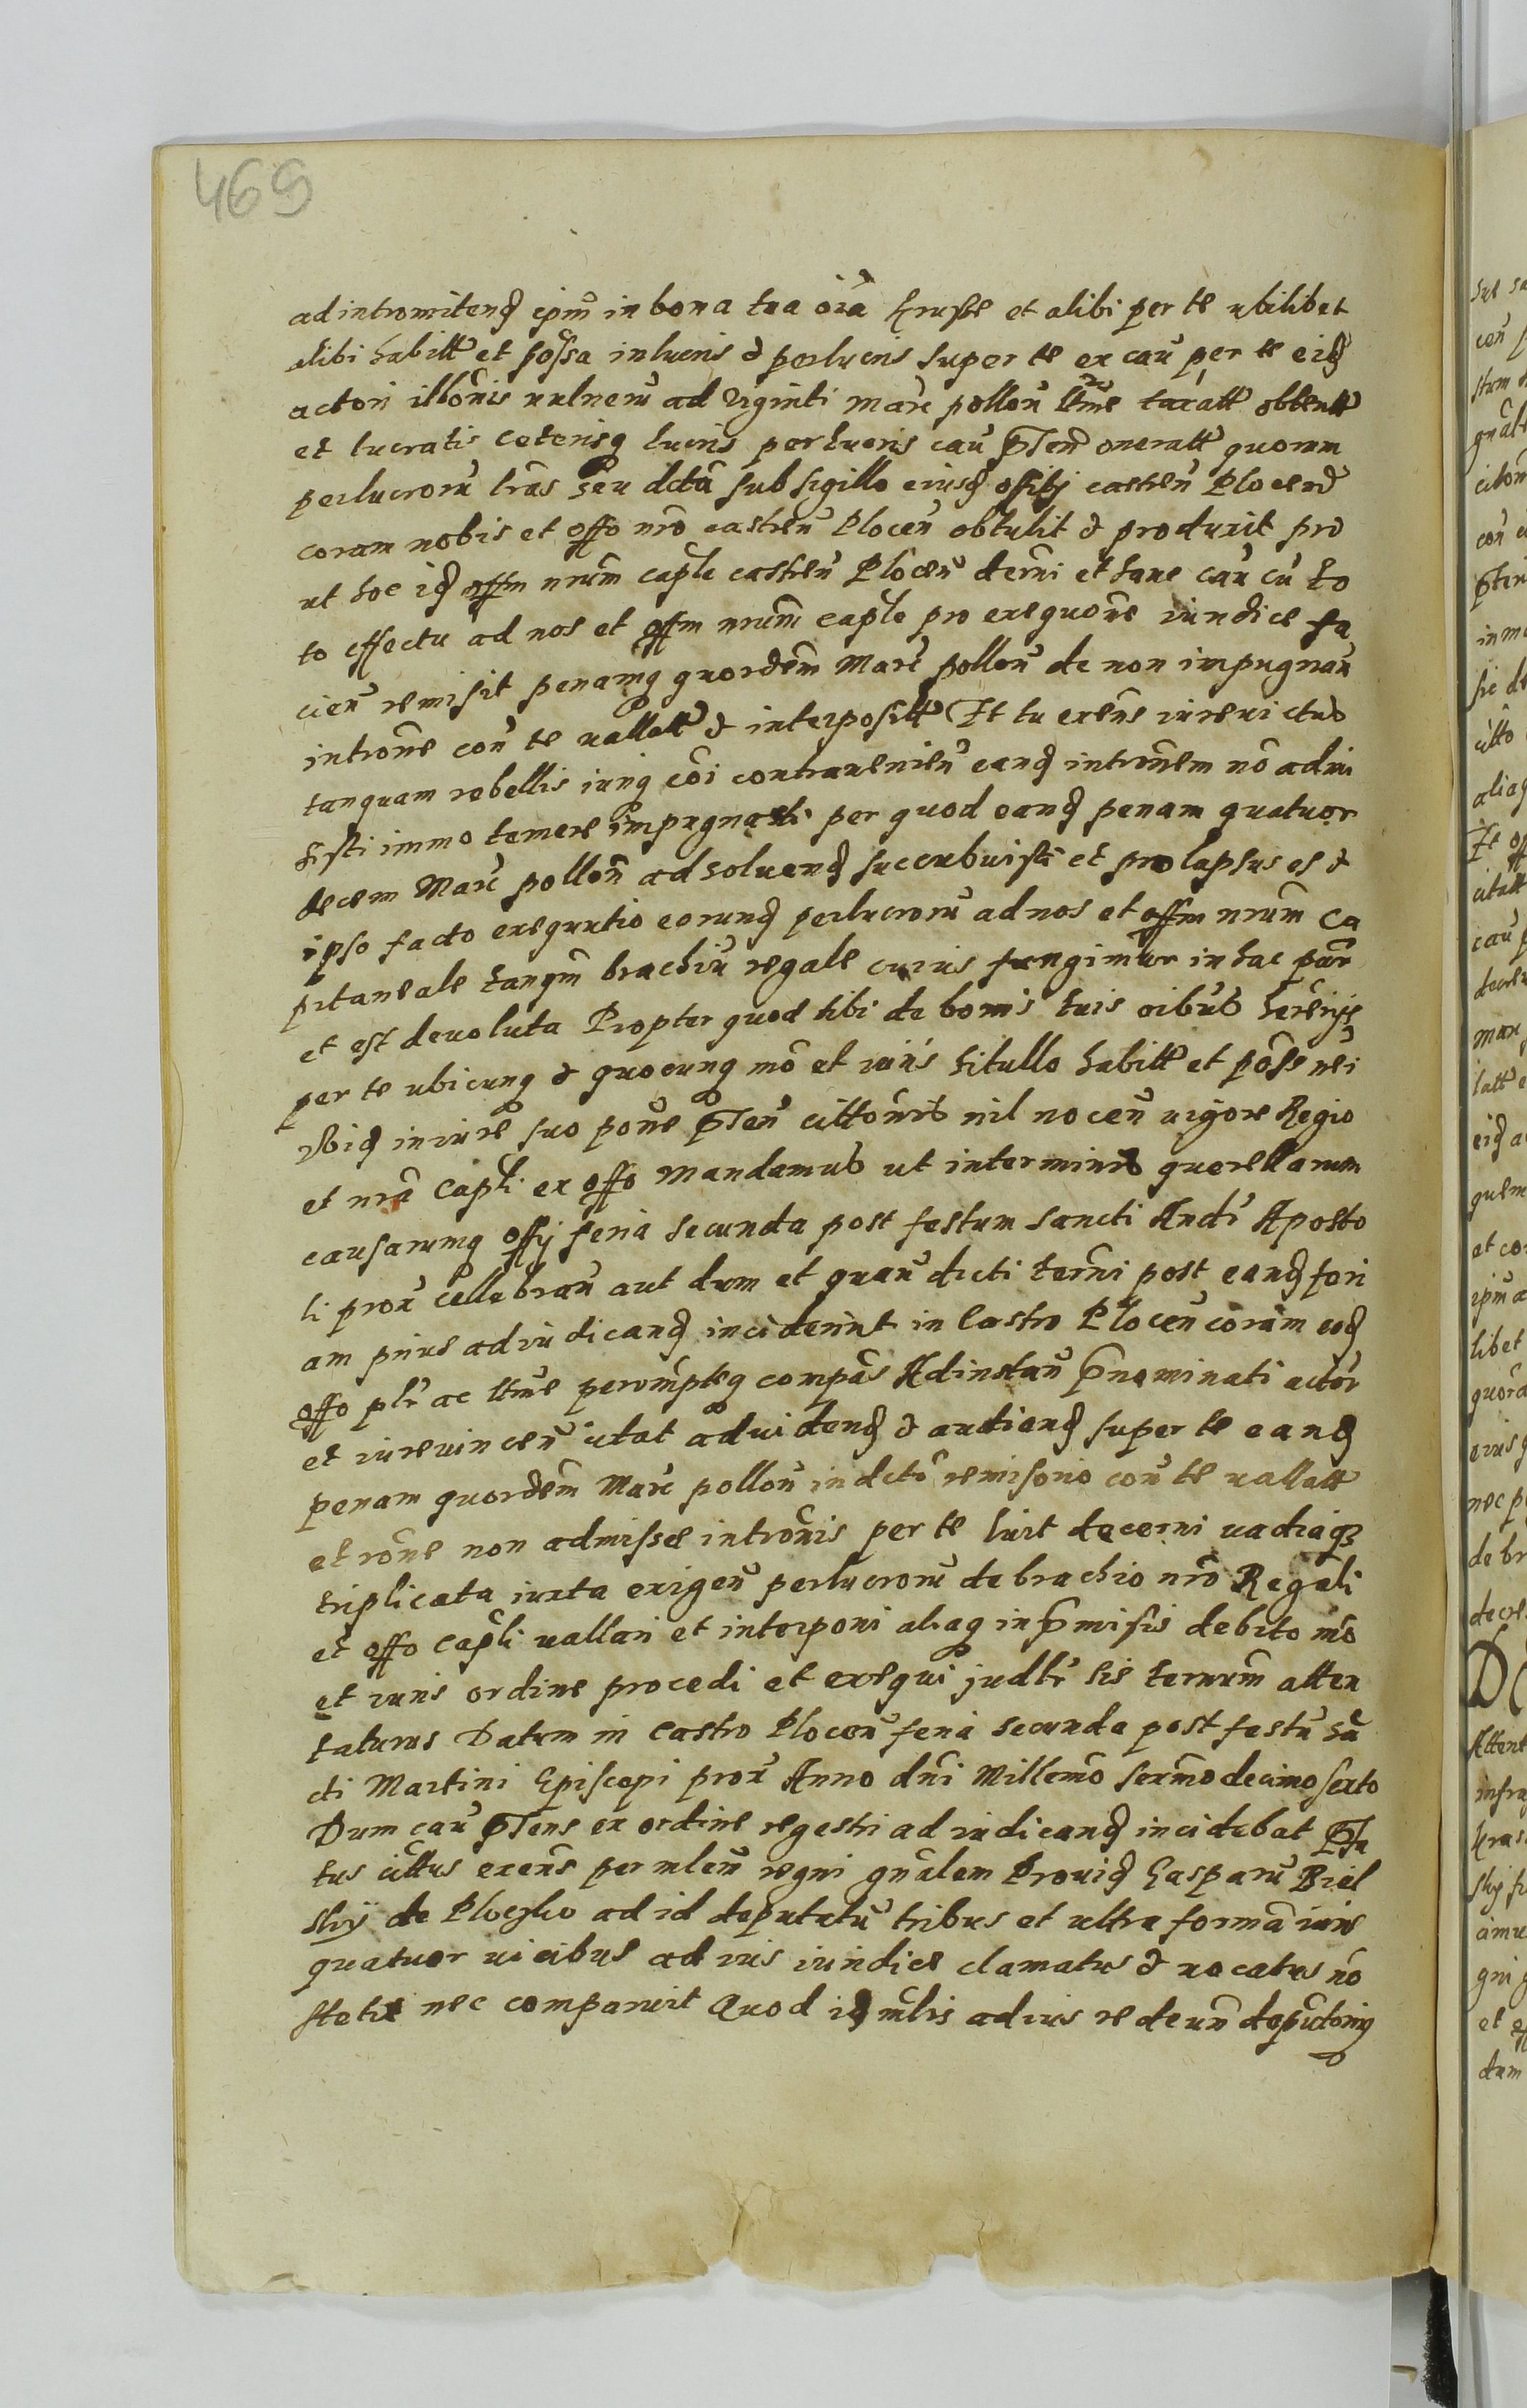 469
ad intromitend ipm in bona tua oia Kruste et alibi per te ubilibet
alibi habitt et possa in lucris & perlucris super te ex cau per te eid
actori illonis vulneru ad viginti marc pollon ltme taxatt obtentt
et lucratis ceterisq lucris perlucris cau pnten oneratt quorum
perlucroru lras seu dcta sub sigillo eiusd officij castren Plocen
coram nobis et offo nro castren Plocen obtulit & produxit pro
ut hoc id offm nrum caple castren Plocen derni et hanc cau cu to
to effectu ad nos et offm nrum caple pro exequone iuridice fa
cien remisit penamq quordem Marc pollon de non impugnan
introne con te vallatt & interpositt Et tu exens iurevictus
tanquam rebellis iuriq coi contravenien eand intronem no admi
sisti immo temere impugnasti per quod eand penam quatuor
decem Marc pollon ad solvend succubuisti et prolapsus es &
ipso facto exequutio eorund perlucroru ad nos et offm nrum ca
pitaneale tanqm brachiu regale cuius fungimur in hac par
et est devoluta Propter quod tibi de bonis tuis oibus
per te ubicunq & quocunq mo et iuris titullo habitt et posse
ibid in iure suo pone pnten cittonis nil nocen vigore Regio
et nra Capli ex offo mandamus ut in terminis querellarum
causarumq offij feria secunda post festum sancti Andr Aposto
li prox cellebran aut dum et quan dicti termi post eand feri
am prius ad iudicand inciderint in Castro Plocen coram eod
offo plr ac ltme perempteq compas Ad instan pnominati actor
et iurevincen citat ad vidend & audiend super te eand
penam quordem Marc pollon in dcto remissorio con te vallatt
et rone non admissae intronis per te luit decerni vadiaq
triplicata iuxta exigen perlucroru de brachio nro Regali
et offo Capli vallari et interponi aliaq in pmisis debito mo
et iuris ordine procedi et exequi judlr sis termm atten
taturus Datum in Castro Plocen feria secunda post festu sa
cti Martini Episcopi prox Anno dni Millemo sexmo decimo sexto
Dum cau pntens ex ordine regestri ad iudicand incidebat
tus cittus exens per mlen regni gnalem Provid Gasparu Biel
skij de Plocko ad id deputatu tribus et ultra forma iuris
quatuor vicibus ad ius iuridice clamatus & vocatus no
stetit nec comparuit Quod id mlis ad ius redeun